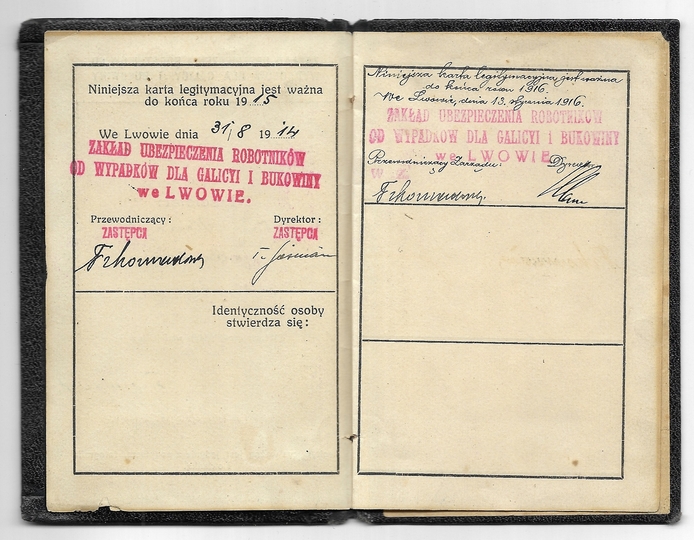 Niniejsza karta legitymacyjna jest ważna
do końca roku 1915
We Lwowie dnia 31/8 1914
ZAKŁAD UBEZPIECZENIA ROBOTNIKÓW
OD WYPADKÓW DLA GALICYI I BUKOWINY
we LWOWIE.
Przewodniczący: Dyrektor:
ZASTĘPCA ZASTĘPCA
Identyczność osoby
stwierdza się:
Niniejsza karta legitymacyjna jest ważna
do końca roku 1916.
We Lwowie, dnia 13. stycznia 1916.
ZAKŁAD UBEZPIECZENIA ROBOTNIKÓW
OD WYPADKÓW DLA GALICYI I BUKOWINY
we LWOWIE
Przewodniczący Zarządu: Dyrektor